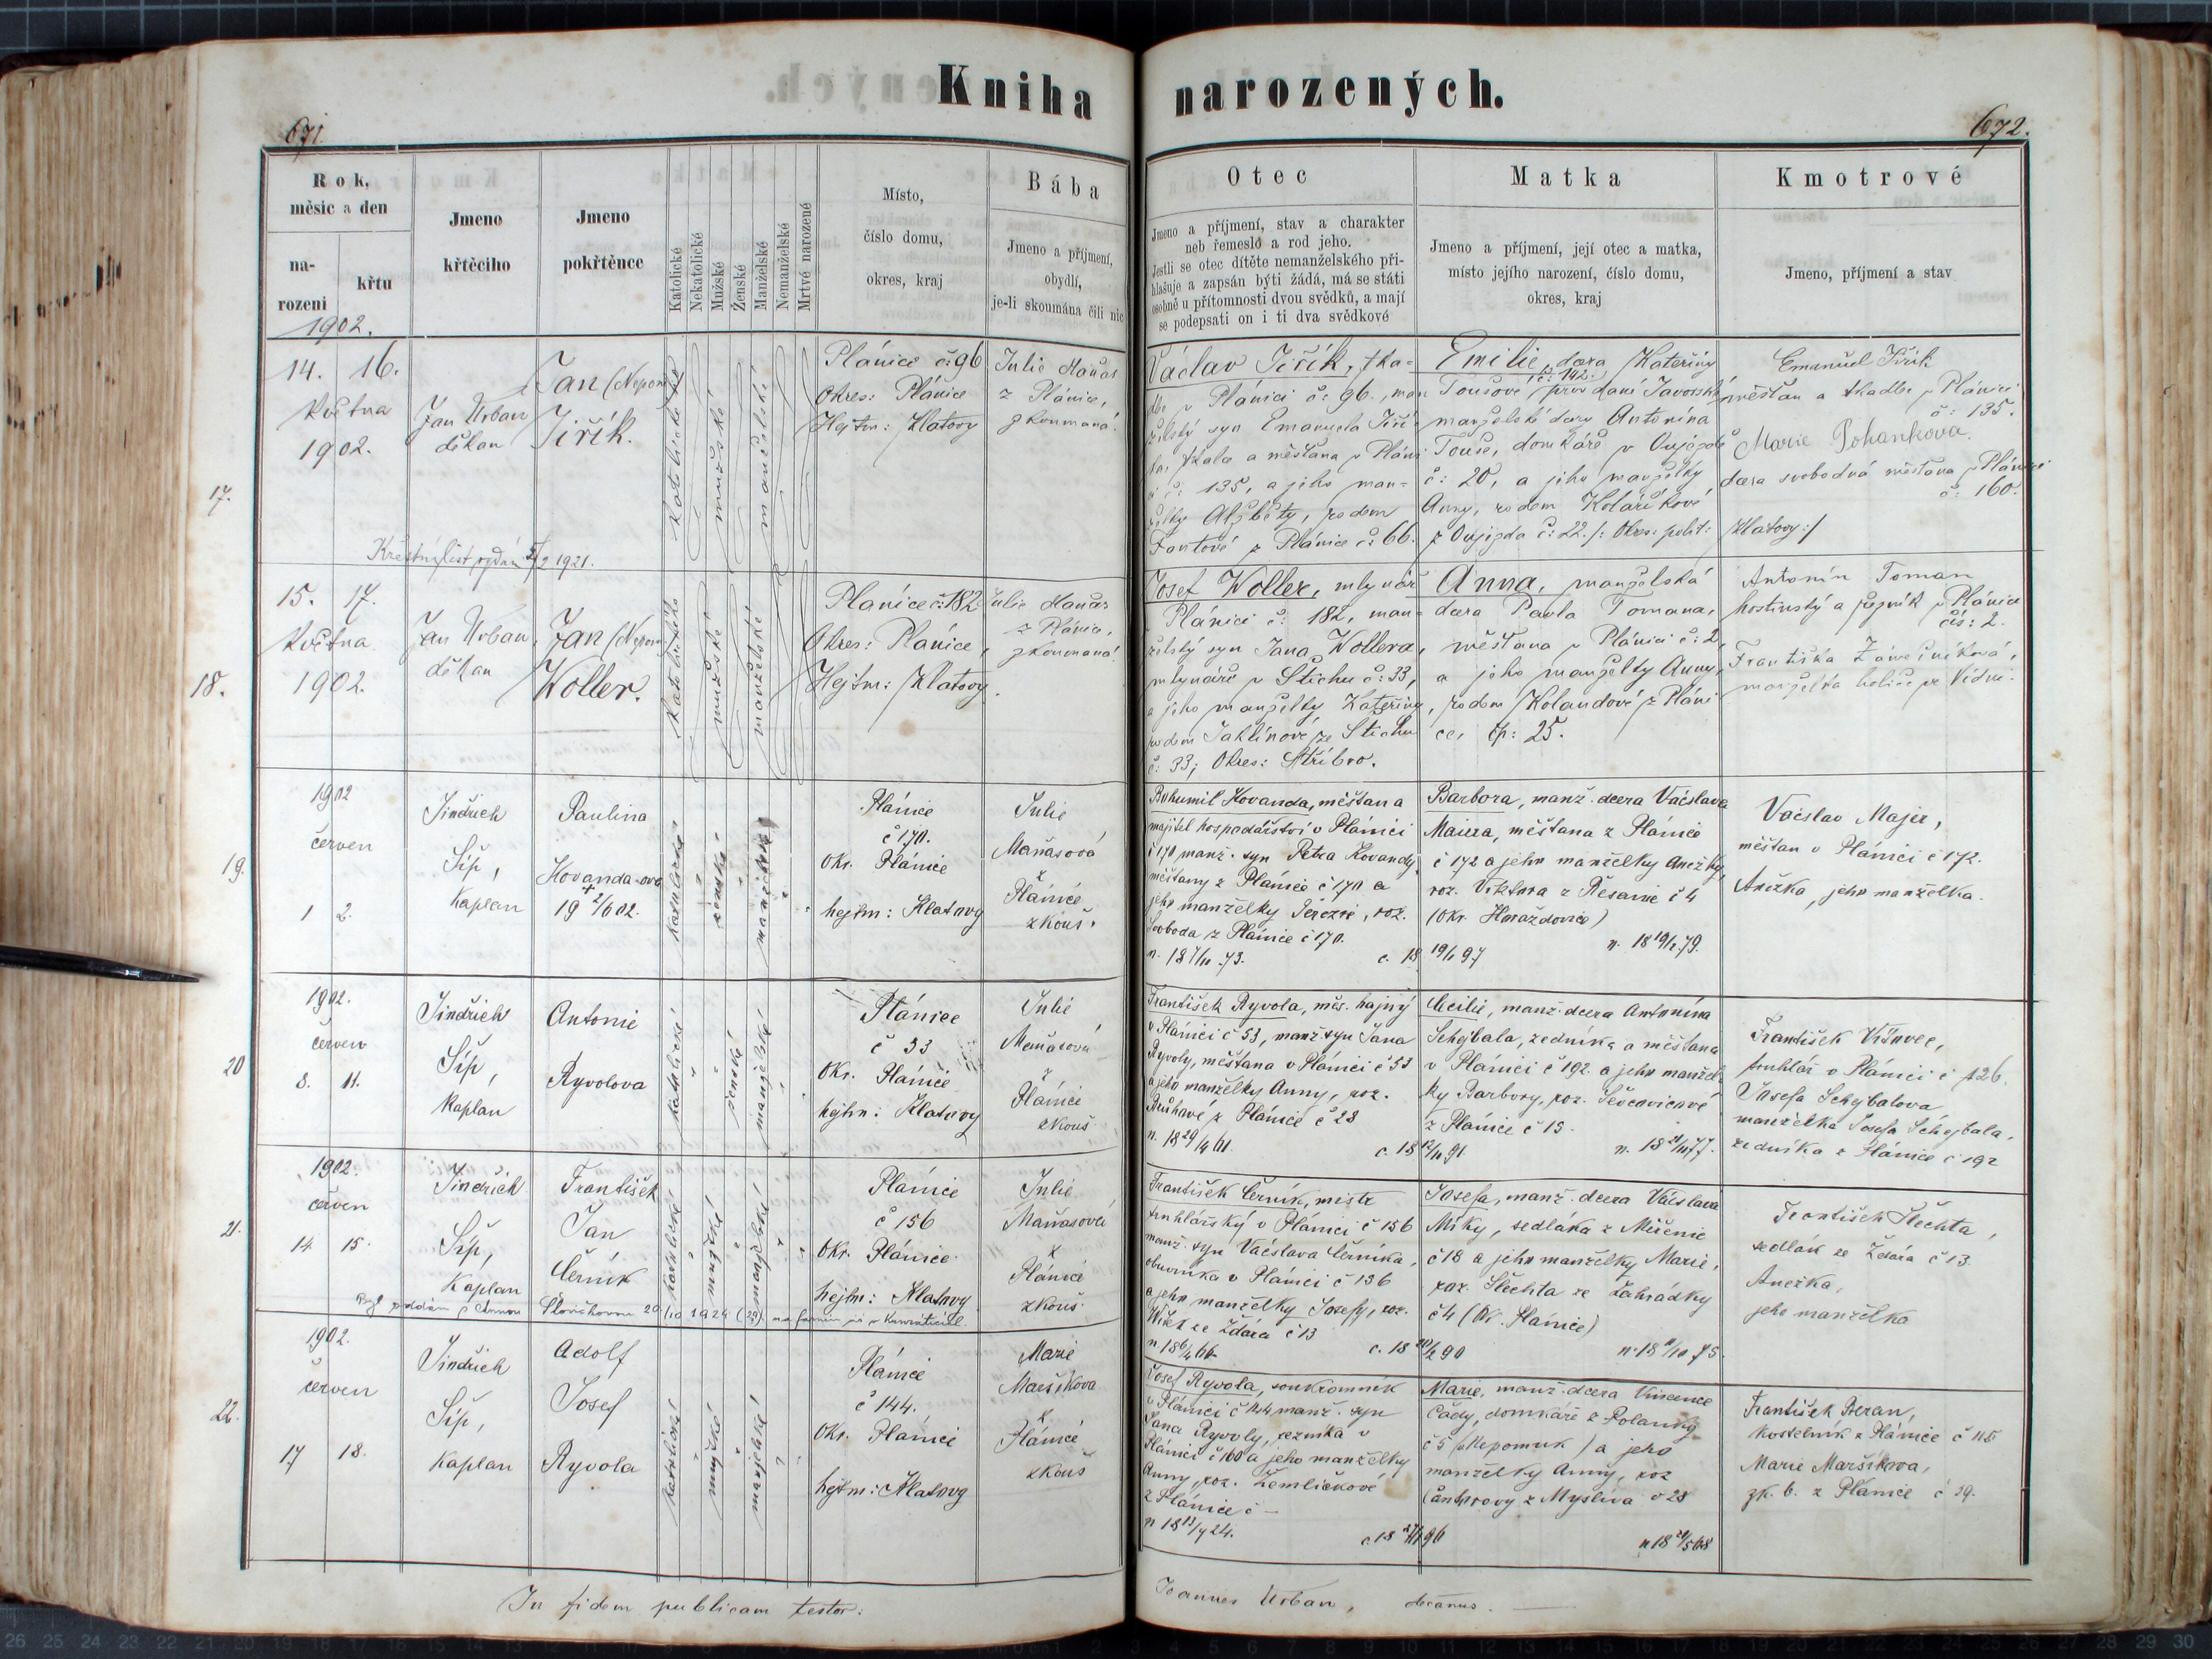 Kniha narozených.
671.
672.
Rok,
měsíc a den
na-
rozeni
křtu
Jmeno
křtěcího
Jmeno
pokřtěnce
Katolické
Nekatolické
Mužské
Ženské
Manželské
Nemanželské
Mrtvé narozené
Místo,
číslo domu,
okres, kraj
Bába
Jmeno a příjmení,
obydlí,
je-li skoumána čili nic
Otec
Jmeno a příjmení, stav a charakter
neb řemeslo a rod jeho.
Jestli se otec dítěte nemanželského při-
hlašuje a zapsán býti žádá, má se státi
osobně u přítomnosti dvou svědků, a mají
se podepsati on i ti dva svědkové
Matka
Jmeno a příjmení, její otec a matka,
místo jejího narození, číslo domu,
okres, kraj
Kmotrové
Jmeno, příjmení a stav
1902.
17.
14. 16.
Května
1902.
Jan Urban
děkan
Jan (Nepom.
Jiřík.
katolické
mužské
manželské
Plánice č: 96
Okres: Plánice
Hejtm: Klatovy
Julie Maňas
z Plánice,
zkoumaná.
Křestní list vydán 5/9 1921.
Václav Jiřík, tka-
dlec v Plánici č: 96, man
želský syn Emanuela Jiří-
ka, tkalce a měšťana v Pláni
ci č: 135, a jeho man-
želky Alžběty, rodem
Fantové z Plánice č: 66.
Emilie, dcera Kateřiny
č: 142.
Toušové, prov dané Javorské
manželské dcery Antonína
Touše, domkáře v Oujezdě
č: 20, a jeho manželky
Anny, rodem Kolaříkové
z Oujezda č: 22. /: Okres: polit:
Klatovy :/
Emanuel Jiřík
měšťan a tkadlec v Plánici
č: 135.
Marie Pohankova.
dcera svobodná měšťana v Plánici
č: 160.
18.
15. 17.
Května
1902.
Jan Urban,
děkan
Jan (Nepom.
Woller.
katolické
mužské
manželské
Plánice č: 182.
Okres: Plánice,
Hejtm: Klatovy.
Julie Maňas
z Plánice,
zkoumaná.
Josef Woller, mlynář
v Plánici č: 182, man-
želský syn Jana Wollera,
mlynáře v Stichu č: 33,
a jeho manželky Kateřiny,
rodem Jaklínové ze Stichu
č: 33; Okres: Stříbro.
Anna, manželská
dcera Pavla Tomana,
měšťana v Plánici č: 2,
a jeho manželky Anny,
rodem Kolandové z Pláni
ce, čp: 25.
Antonín Toman
hostinský a řezník v Plánici
čís: 2.
Františka Závešníková,
manželka holiče ve Vídni.
19.
1902
červen
1 2.
Jindřich
Šíp,
kaplan
Paulina
Kovanda-ova
+ 19 2/6 02.
katolické
ženské
manželské
Plánice
č 170.
okr. Plánice
hejtm: Klatovy
Julie
Maňasová
z
Plánice
zkouš.
Bohumil Kovanda, měšťan a
majitel hospodářství v Plánici
č 170 manž. syn Petra Kovandy,
měšťany z Plánice č 170 a
jeho manželky Terezie, roz.
Svoboda z Plánice č 170.
n. 18 7/11 73.
c. 18 19/1 97
Barbora, manž. dcera Václava
Maiera, měšťana z Plánice
č 172 a jeho manželky Anežky,
roz. Viktora z Řesanic č 4
(okr. Horažďovice)
n. 18 19/1 79.
Václav Majer,
měšťan v Plánici č 172.
Anežka, jeho manželka.
20
1902.
červen
8. 11.
Jindřich
Šíp,
kaplan
Antonie
Ryvolova
katolické
ženské
manželské
Plánice
č 53
okr. Plánice
hejtm: Klatovy
Julie
Maňasová
z
Plánice
zkouš.
František Ryvola, měs. hajný
v Plánici č 53, manž. syn Jana
Ryvoly, měšťana v Plánici č 53
a jeho manželky Anny, roz.
z Plánice č 28
n. 18 29/4 61.
c. 18 12/11 91.
Cecilie, manž. dcera Antonína
Schejbala, zedníka a měšťana
v Plánici č 192. a jeho manžel-
ky Barbory, roz. Ševcovicové
z Plánice č 15.
n. 18 21/11 77.
František Višnvec,
truhlář v Plánici č 126.
Josefa Schejbalova
manželka Josefa Schejbala,
zedníka z Plánice č 192
21.
1902.
červen
14. 15.
Jindřich
Šíp,
kaplan
František
Jan
Černík
katolické
mužské
manželské
Plánice
č 156
okr. Plánice
hejtm: Klatovy
Julie
Maňasová
z
Plánice
zkouš.
Byl oddán s Annou Slovíčkovou 20/10 1924
František Černík, mistr
truhlářský v Plánici č 156
manž. syn Václava Černíka,
obuvníka v Plánici č 136
a jeho manželky Josefy, roz.
ze Ždára č 13
n 18 6/4 66
c. 18 20/2 90
Josefa, manž. dcera Václava
Míky, sedláka z Měčenic
č 18 a jeho manželky Marie,
roz. Šlechta ze Zahrádky
č 4 (Ok. Plánice)
František Šlechta,
sedlák ze Ždára č 13.
Anežka,
jeho manželka
22.
1902.
červen
17. 18.
Jindřich
Šíp,
kaplan
Adolf
Josef
Ryvola
katolické
mužské
manželské
Plánice
č 144.
okr. Plánice
hejtm: Klatovy
Marie
Maršíkova
z
Plánice
zkouš
Josef Ryvola, soukromník
v Plánici č 144 manž. syn
Jana Ryvoly, řezníka v
Plánici č 160 a jeho manželky
Anny, roz. Žemličkové
z Plánice č –
n 18 13/4 24.
c. 18 96
Marie, manž. dcera Vincence
Čády, domkáře z Polánky
č 5 (Nepomuk) a jeho
manželky Anny, roz
z Myslíva č 28
n 18 20/5 68
František Beran,
kostelník z Plánice č 115
Marie Maršíkova,
zk. b. z Plánice č 39.
In fidem publicam testor:
Joannes Urban, decanus.